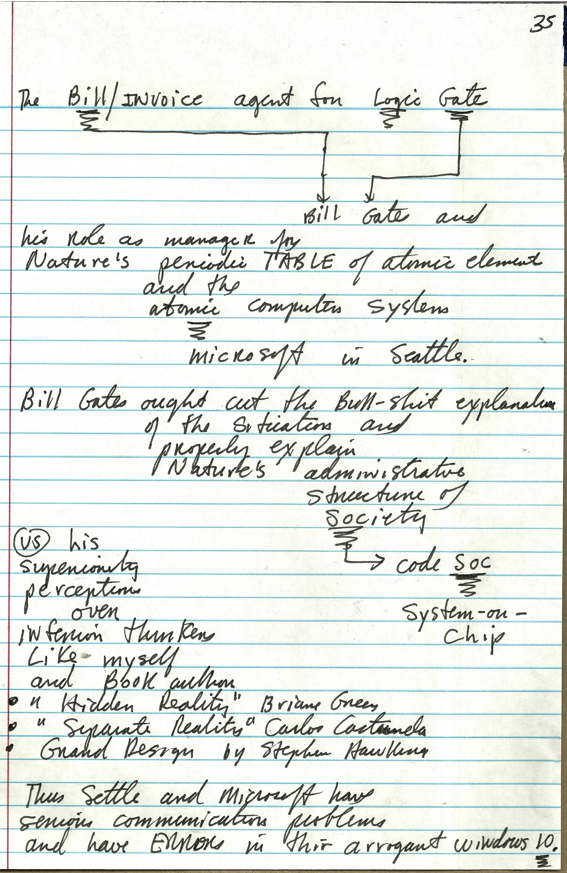 35
The Bill/INvoice agent for Logic Gate
Bill Gates and
his role as manager for
Nature's periodic TABLE of atomic element
and the
atomic computer system
microsoft in Seattle.
Bill Gates ought cut the Bull-shit explanation
of the situation and
properly explain
Nature's administrative
structure of
Society
code SOC
System-on-
Chip
VS his
superiority
perceptions
over
inferior thinkers
Like myself
and Book author
• "Hidden Reality" Briane Green
• "Separate Reality" Carlos Castaneda
• Grand Design by Stephen Hawking
Thus Settle and Microsoft have
serious communication problems
and have ERRORS in thir arrogant windows 10.